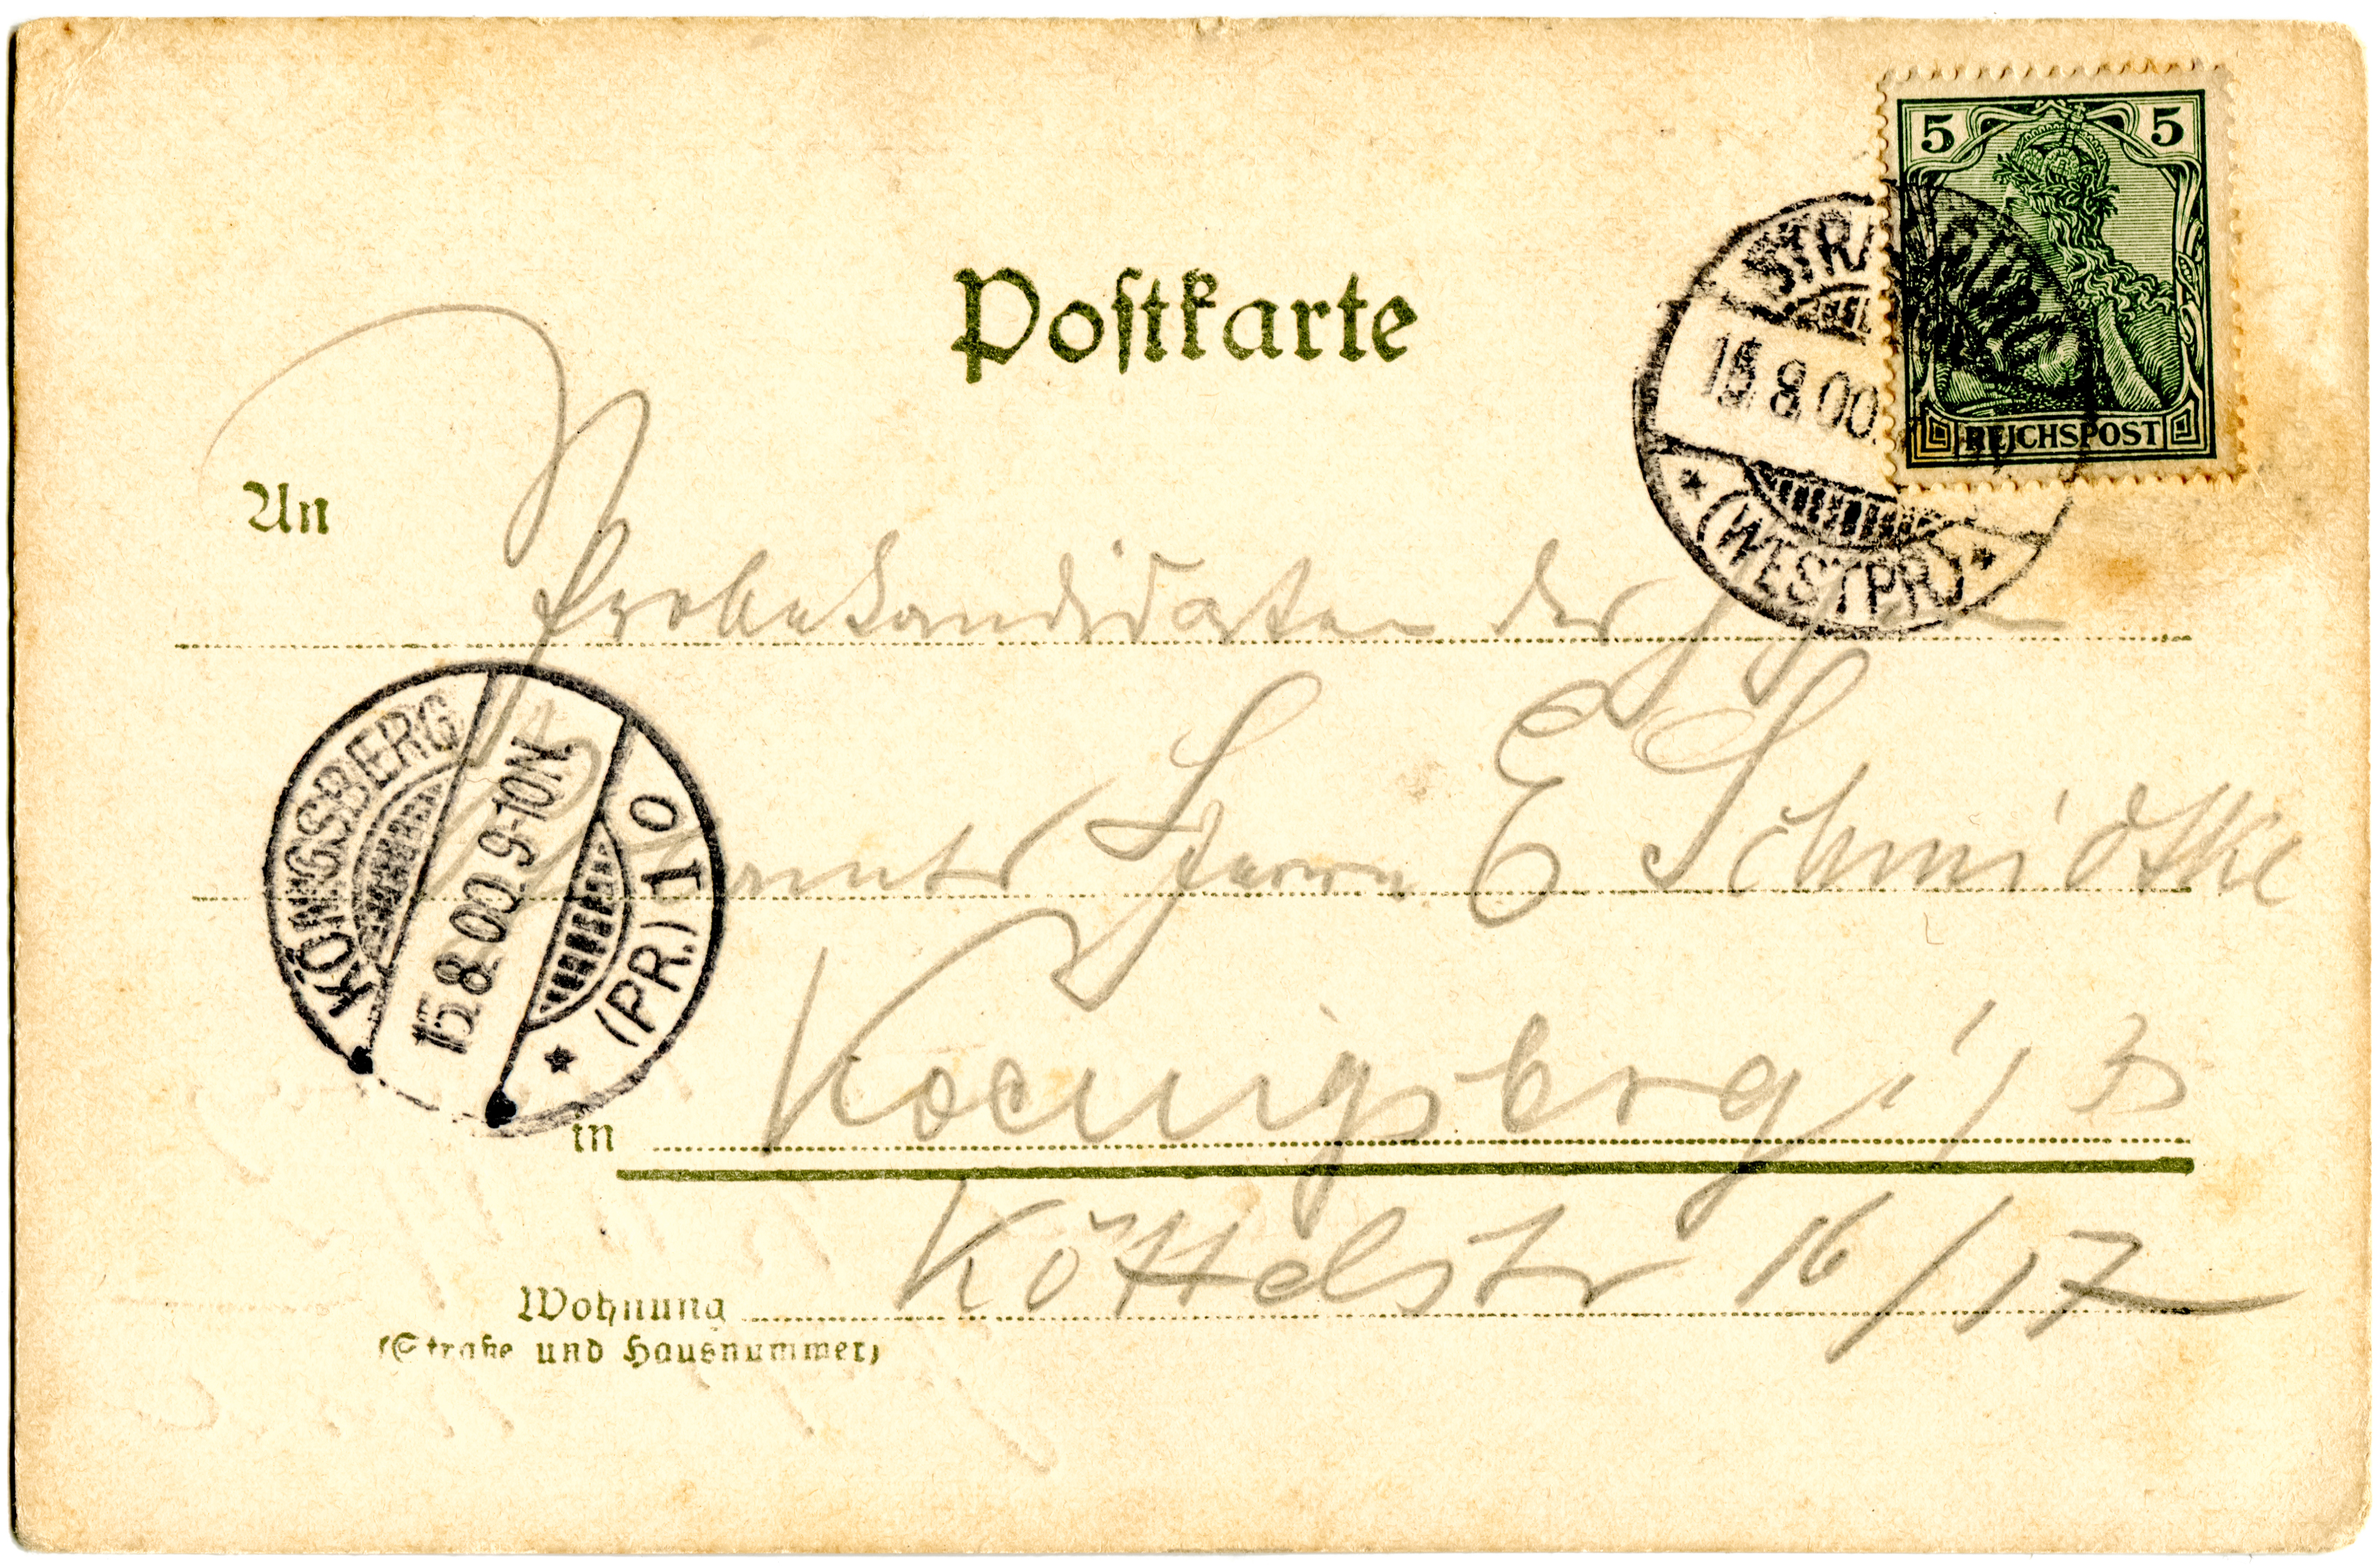 5 5
REICHSPOST
15.8.00.
* (WESTPR) *
Postkarte
An
Probekandidaten der
Herrn E Schmidtke
KÖNIGSBERG
15.8.00. 9-10N.
* (PR.) 10
in Koenigsberg i/
Wohnung Köttelstr 16/17
(Straße und Hausnummer)